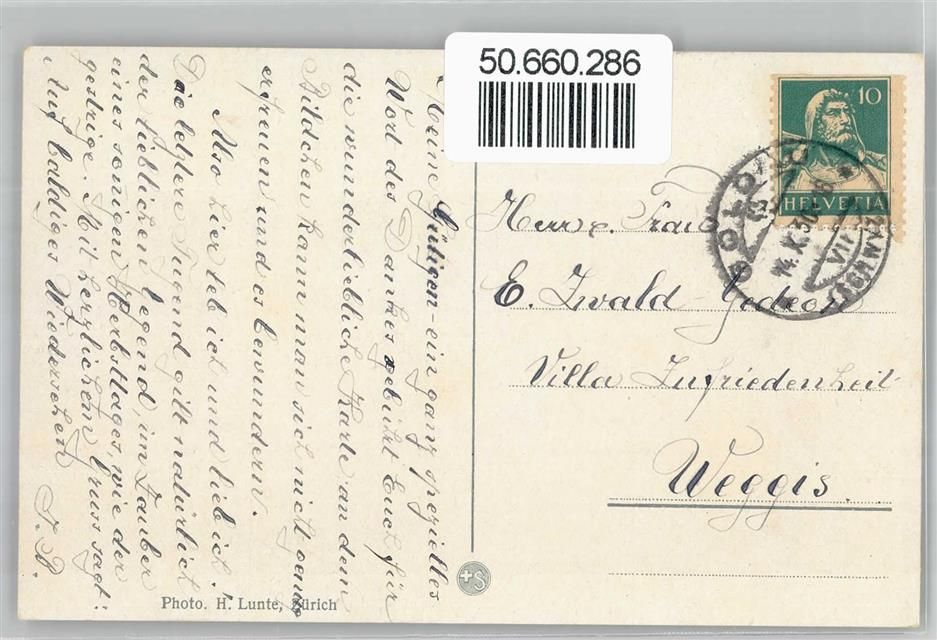 50.660.286
10
HELVETIA
14.X.30.-8
VII
Meine Gütigen - ein ganz spezielles
Wort des Dankes gebührt Euch für
die wunderliebliche Karte an dem
Bildchen kann man sich nicht
erfreuen und es bewundern.
Also hier leb ich und lieb ich,
Die letztere Tugend gilt natürlich
der lieblichen Gegend, im Zauber
eines sonnigen Herbsttages, wie der
gestrige. Mit herzlichem Gruss sagt:
Auf baldiges Wiedersehen
J. B.
Herr u. Frau
E. Zwald-Gedeon
Villa Zufriedenheit
Weggis.
+S
Photo. H. Lunte, Zürich